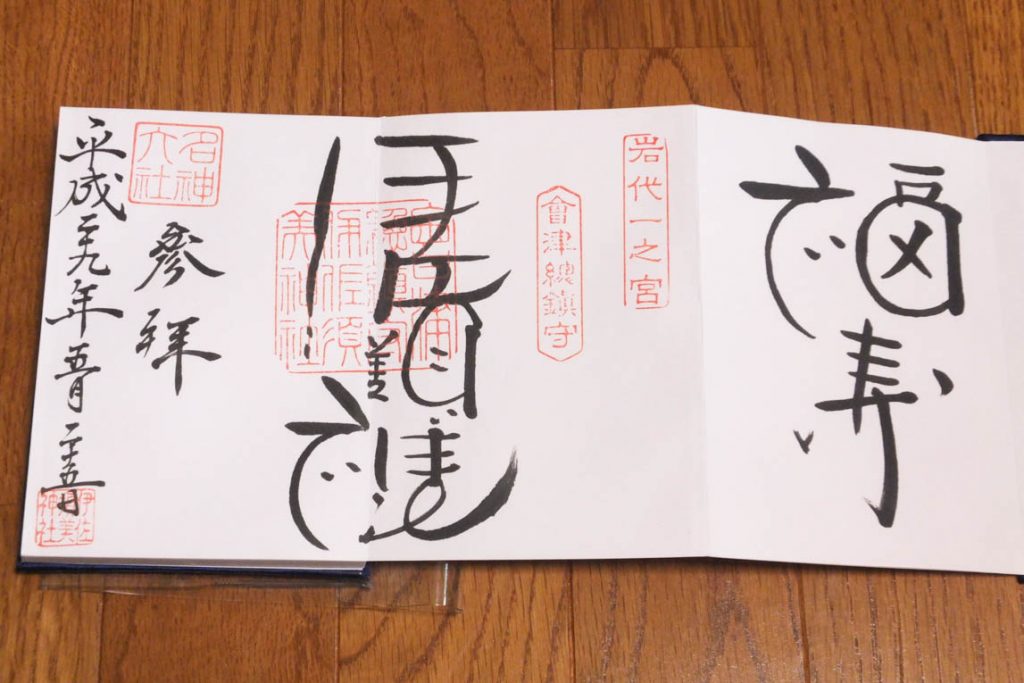 福寿
岩代一之宮
會津總鎮守
伊佐須美神社
参拝
名神
大社
平成二十九年五月二十五日
伊佐
須美
神社